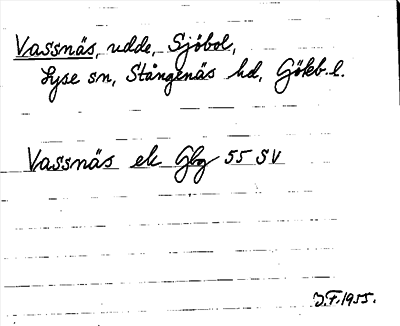 Vassnäs, udde, Sjöbol,
Lyse sn, Stångenäs hd, Gökb. l.
Vassnäs ek Gbg 55 SV
J.F. 1955.